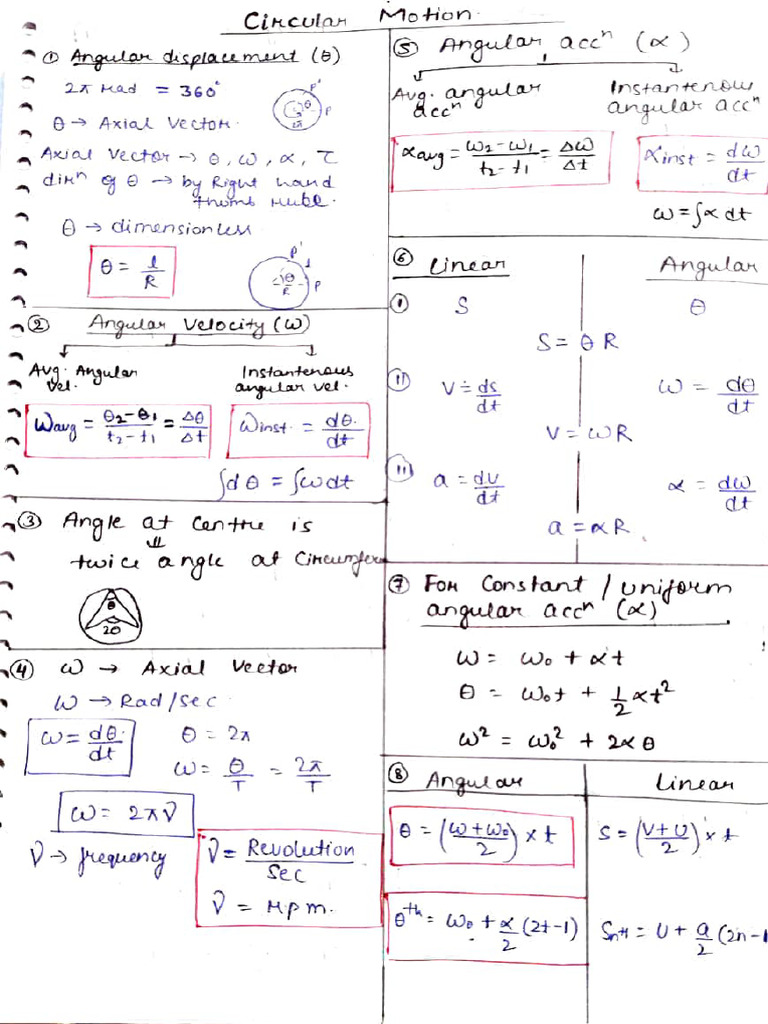 Circular Motion
① Angular displacement (θ)
2π rad = 360°
θ P' P
2π
θ → Axial Vector.
Axial Vector → θ, ω, α, τ
dirⁿ of θ → by Right hand
thumb rule.
θ → dimensionless
θ = l/R
P' l θ R P
② Angular Velocity (ω)
Avg. Angular Vel.
Instantenous angular vel.
ωavg = θ2-θ1/t2-t1 = Δθ/Δt
ωinst. = dθ/dt
∫dθ = ∫ωdt
③ Angle at centre is
⇓
twice angle at circumfere
θ
2θ
④ ω → Axial Vector
ω → Rad/sec
ω = dθ/dt
θ = 2π
ω = θ/T = 2π/T
ω = 2πν
ν → frequency
ν = Revolution/sec
ν = r.p.m.
⑤ Angular accⁿ (α)
Avg. angular accⁿ
Instantenous angular accⁿ
αavg = ω2-ω1/t2-t1 = Δω/Δt
αinst = dω/dt
ω = ∫α dt
⑥ Linear Angular
① S θ
S = θR
⑪ V = ds/dt ω = dθ/dt
V = ωR
⑪ a = dv/dt α = dω/dt
a = αR
⑦ For Constant / uniform
angular accⁿ (α)
ω = ω₀ + αt
θ = ω₀t + 1/2 αt²
ω² = ω₀² + 2αθ
⑧ Angular Linear
θ = (ω+ω₀/2) × t S = (V+U/2) × t
θᵗʰ = ω₀ + α/2 (2t-1) Snth = U + a/2 (2n-1